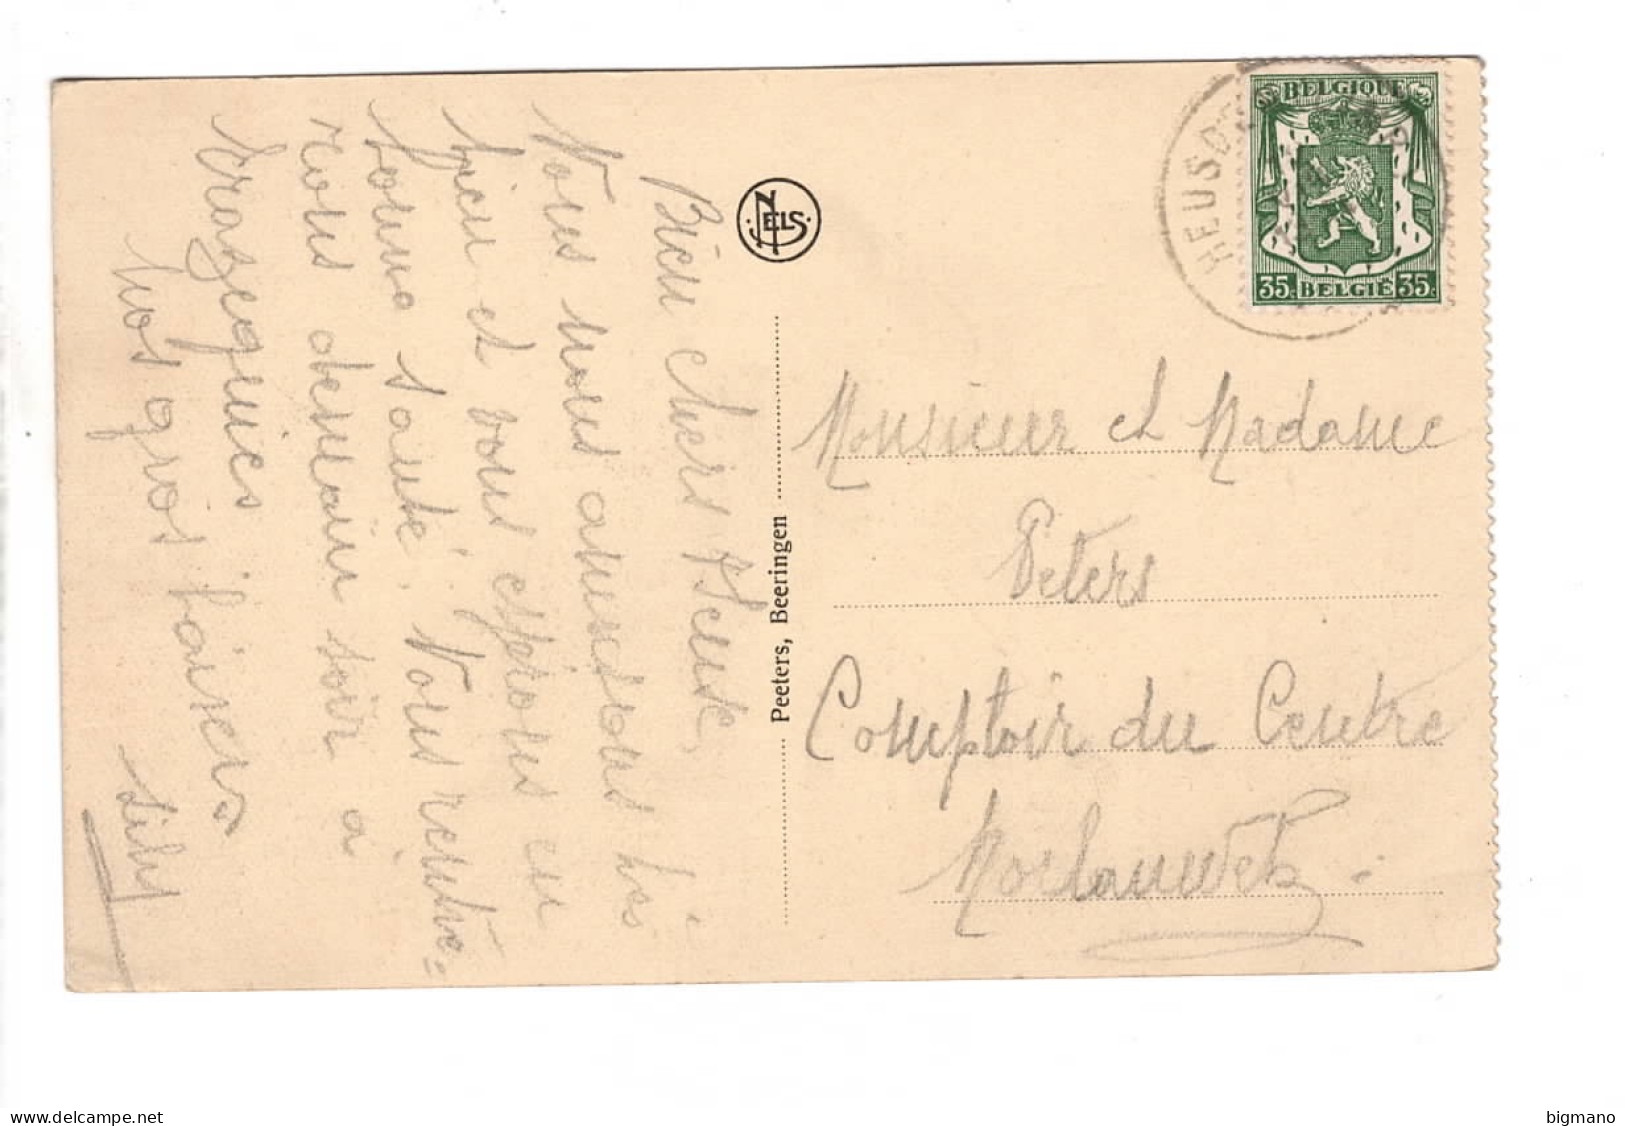 Bien chers tseuse,
Nous nous amusons très
bien et nous espérons en
bonne santé. Nous rentre=
rons demain soir à
Erasquenies
Nos gros baisers
NELS
Peeters, Beeringen
HEUSDEN
BELGIQUE
35c BELGIE 35c
Monsieur et Madame
Peters
Comptoir du Centre
Morlanwelz.
www.delcampe.net
bigmano